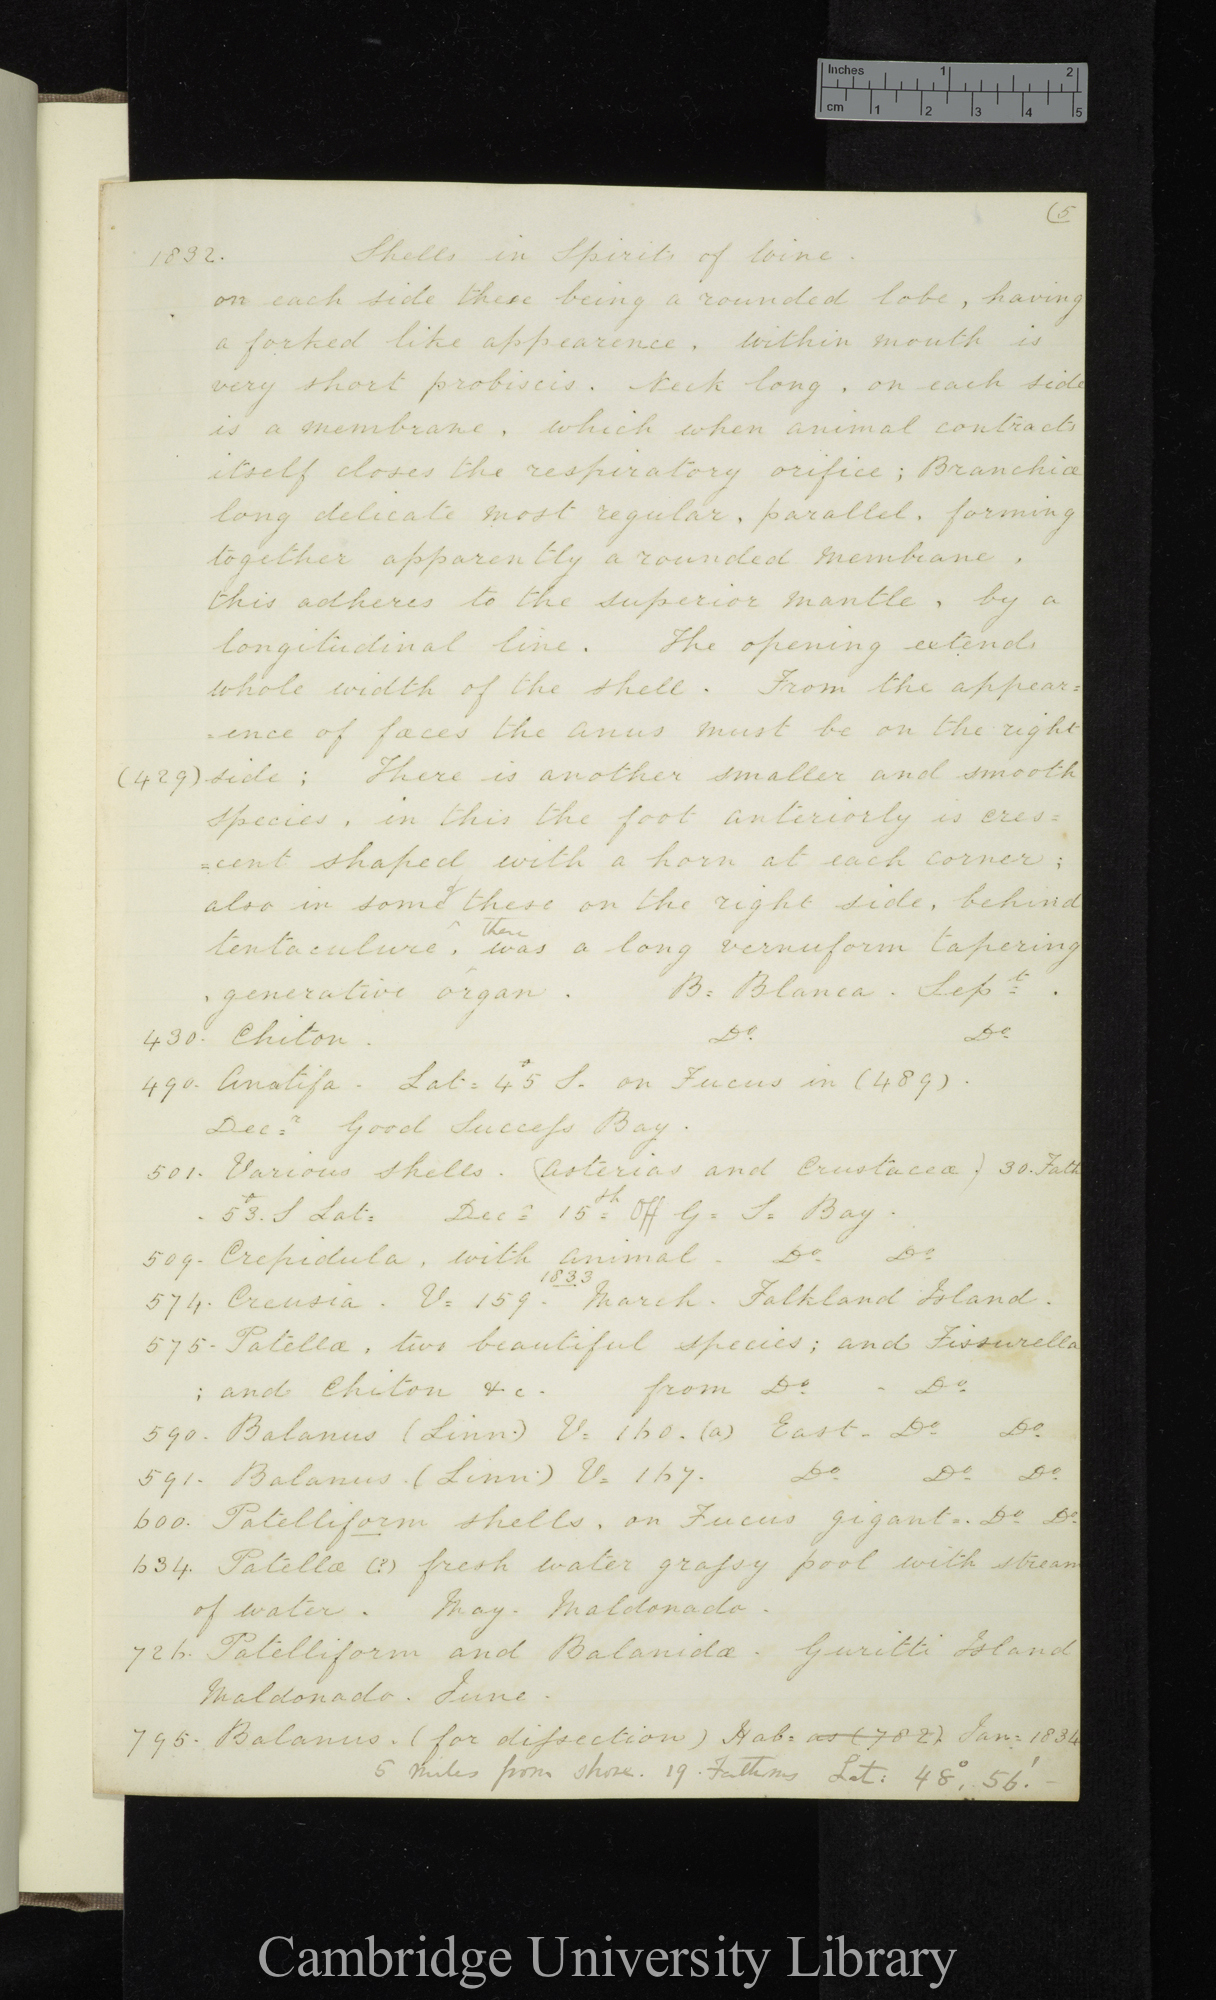 Inches 1 2
cm 1 2 3 4 5
(5
1832. Shells in Spirits of Wine.
on each side these being a rounded lobe, having
a forked like appearence. Within mouth is
very short probiscis. Neck long, on each side
is a membrane, which when animal contracts
itself closes the respiratory orifice; Branchiæ
long delicate most regular, parallel, forming
together apparently a rounded membrane,
this adheres to the superior mantle, by a
longitudinal line. The opening extends
whole width of the shell. From the appear=
=ence of fæces the anus must be on the right
(429) side; There is another smaller and smooth
species, in this the foot anteriorly is cres=
=cent shaped with a horn at each corner;
also in some of these on the right side, behind
tentaculure, there was a long vermuform tapering
generative organ. B= Blanca. Sept=.
430. Chiton. Do. Do.
490. Anatifa. Lat= 45° S. on Fucus in (489).
Dec=r Good Success Bay.
501. Various shells. (Asterias and Crustaceæ) 30. Fath
53°. S Lat= Dec=r 15=th Off G= S= Bay.
509. Crepidula, with animal. Do. Do.
574. Creusia. V= 159. 1833 March. Falkland Island.
575. Patellæ, two beautiful species; and Fissurella
; and Chiton &c. from Do. - Do.
590. Balanus (Linn:) V= 160. (a) East- Do. Do.
591. Balanus. (Linn:) V= 167. Do. Do. Do.
600. Patelliform shells, on Fucus gigant=. Do. Do.
634. Patellæ (?) fresh water grassy pool with stream
of water. May. Maldonado.
726. Patelliform and Balanidæ. Guritti Island
Maldonado. June.
795. Balanus. (for dissection) Hab= as (782). Jan= 1834
5 miles from shore. 19. Fathoms Lat: 48°, 56'. -
Cambridge University Library